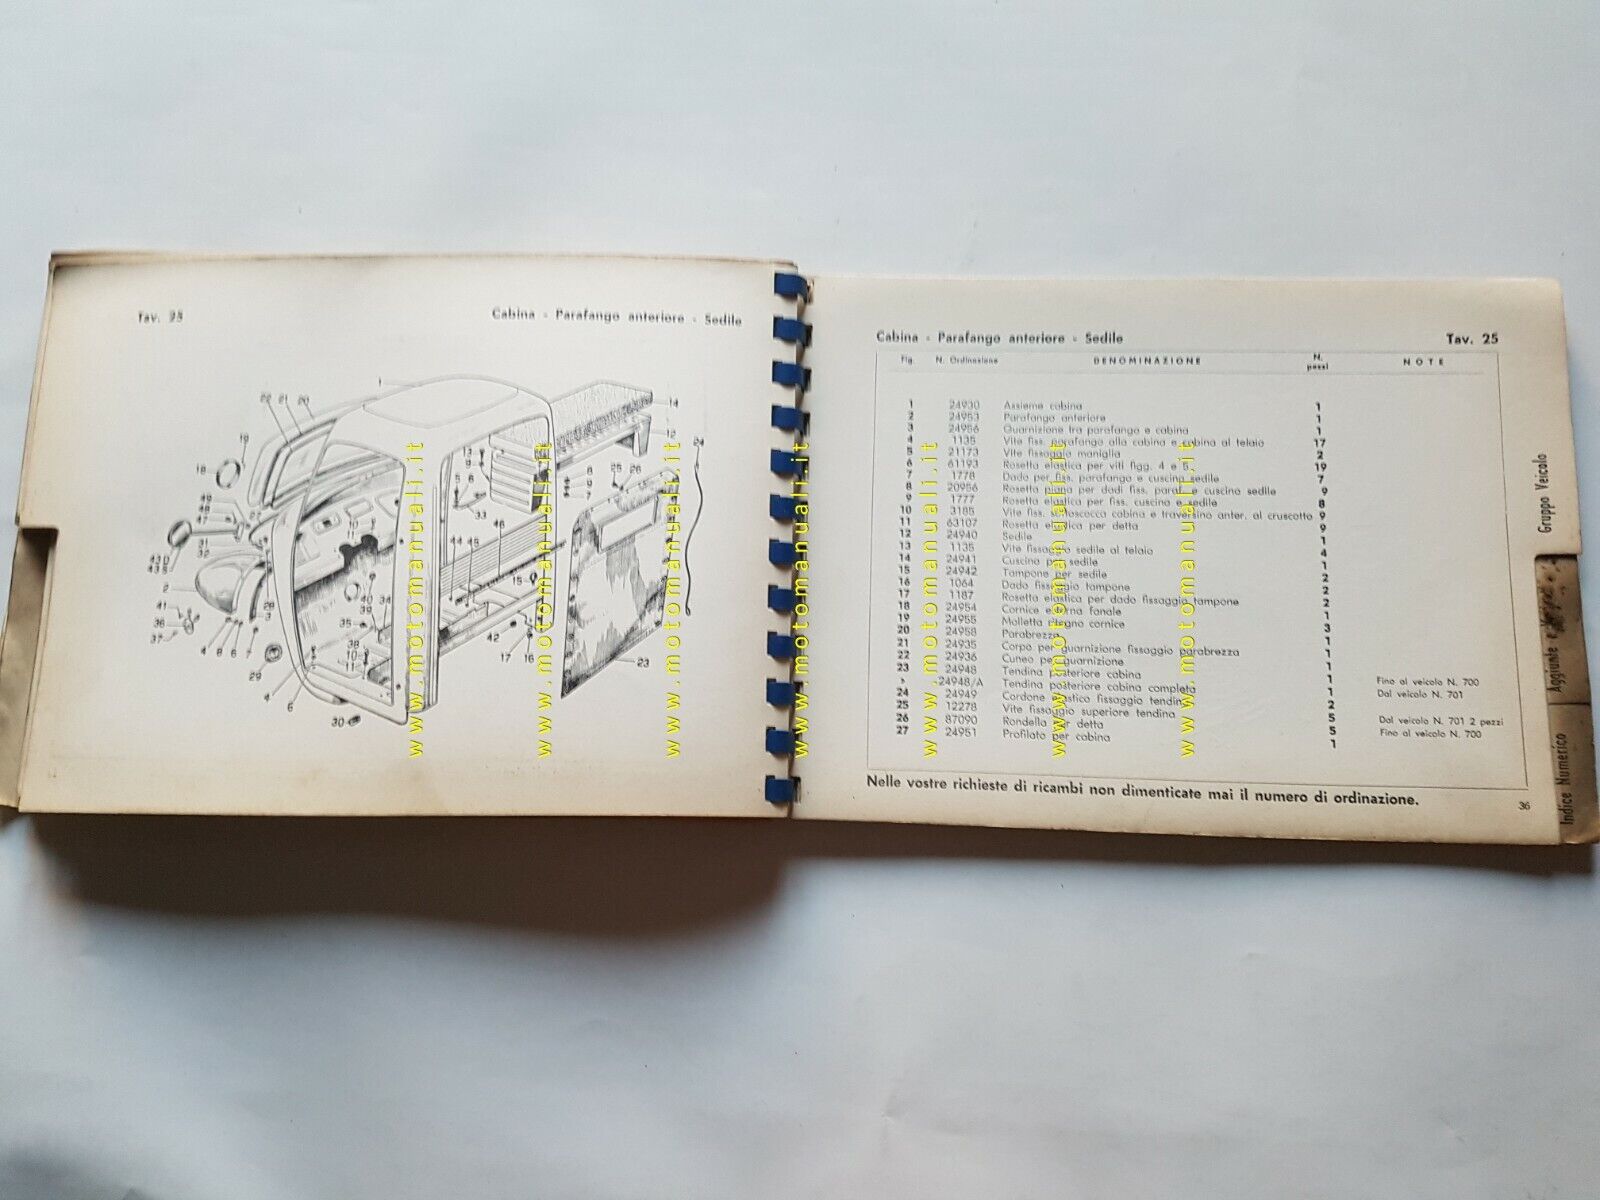 Tav. 25
Cabina - Parafango anteriore - Sedile
www.motomanuali.it
www.motomanuali.it
www.motomanuali.it
www.motomanuali.it
www.motomanuali.it
www.motomanuali.it
www.motomanuali.it
Cabina - Parafango anteriore - Sedile Tav. 25
Fig. N. Ordinazione DENOMINAZIONE N. pezzi NOTE
1 24930 Assieme cabina 1
2 24953 Parafango anteriore 1
3 24956 Guarnizione tra parafango e cabina 1
4 1135 Vite fiss. parafango alla cabina e cabina al telaio 17
5 21173 Vite fissaggio maniglia 2
6 61193 Rosetta elastica per viti figg. 4 e 5 19
7 1778 Dado per fiss. parafango e cuscino sedile 7
8 20956 Rosetta piana per dadi fiss. paraf. e cuscino sedile 9
9 1777 Rosetta elastica per fiss. cuscino e sedile 8
10 3185 Vite fiss. sottoscocca cabina e traversino anter. al cruscotto 9
11 63107 Rosetta elastica per detta 9
12 24940 Sedile 1
13 1135 Vite fissaggio sedile al telaio 4
14 24941 Cuscino per sedile 1
15 24942 Tampone per sedile 2
16 1064 Dado fissaggio tampone 2
17 1187 Rosetta elastica per dado fissaggio tampone 2
18 24954 Cornice esterna fanale 1
19 24955 Molletta ritegno cornice 3
20 24958 Parabrezza 1
21 24935 Corpo per guarnizione fissaggio parabrezza 1
22 24936 Cuneo per guarnizione 1
23 24948 Tendina posteriore cabina 1 Fino al veicolo N. 700
» 24948/A Tendina posteriore cabina completa 1 Dal veicolo N. 701
24 24949 Cordone elastico fissaggio tendina 2
25 12278 Vite fissaggio superiore tendina 5 Dal veicolo N. 701 2 pezzi
26 87090 Rondella per detta 5 Fino al veicolo N. 700
27 24951 Profilato per cabina 1
Nelle vostre richieste di ricambi non dimenticate mai il numero di ordinazione.
36
Gruppo Veicolo
Aggiunte e
Indice Numerico